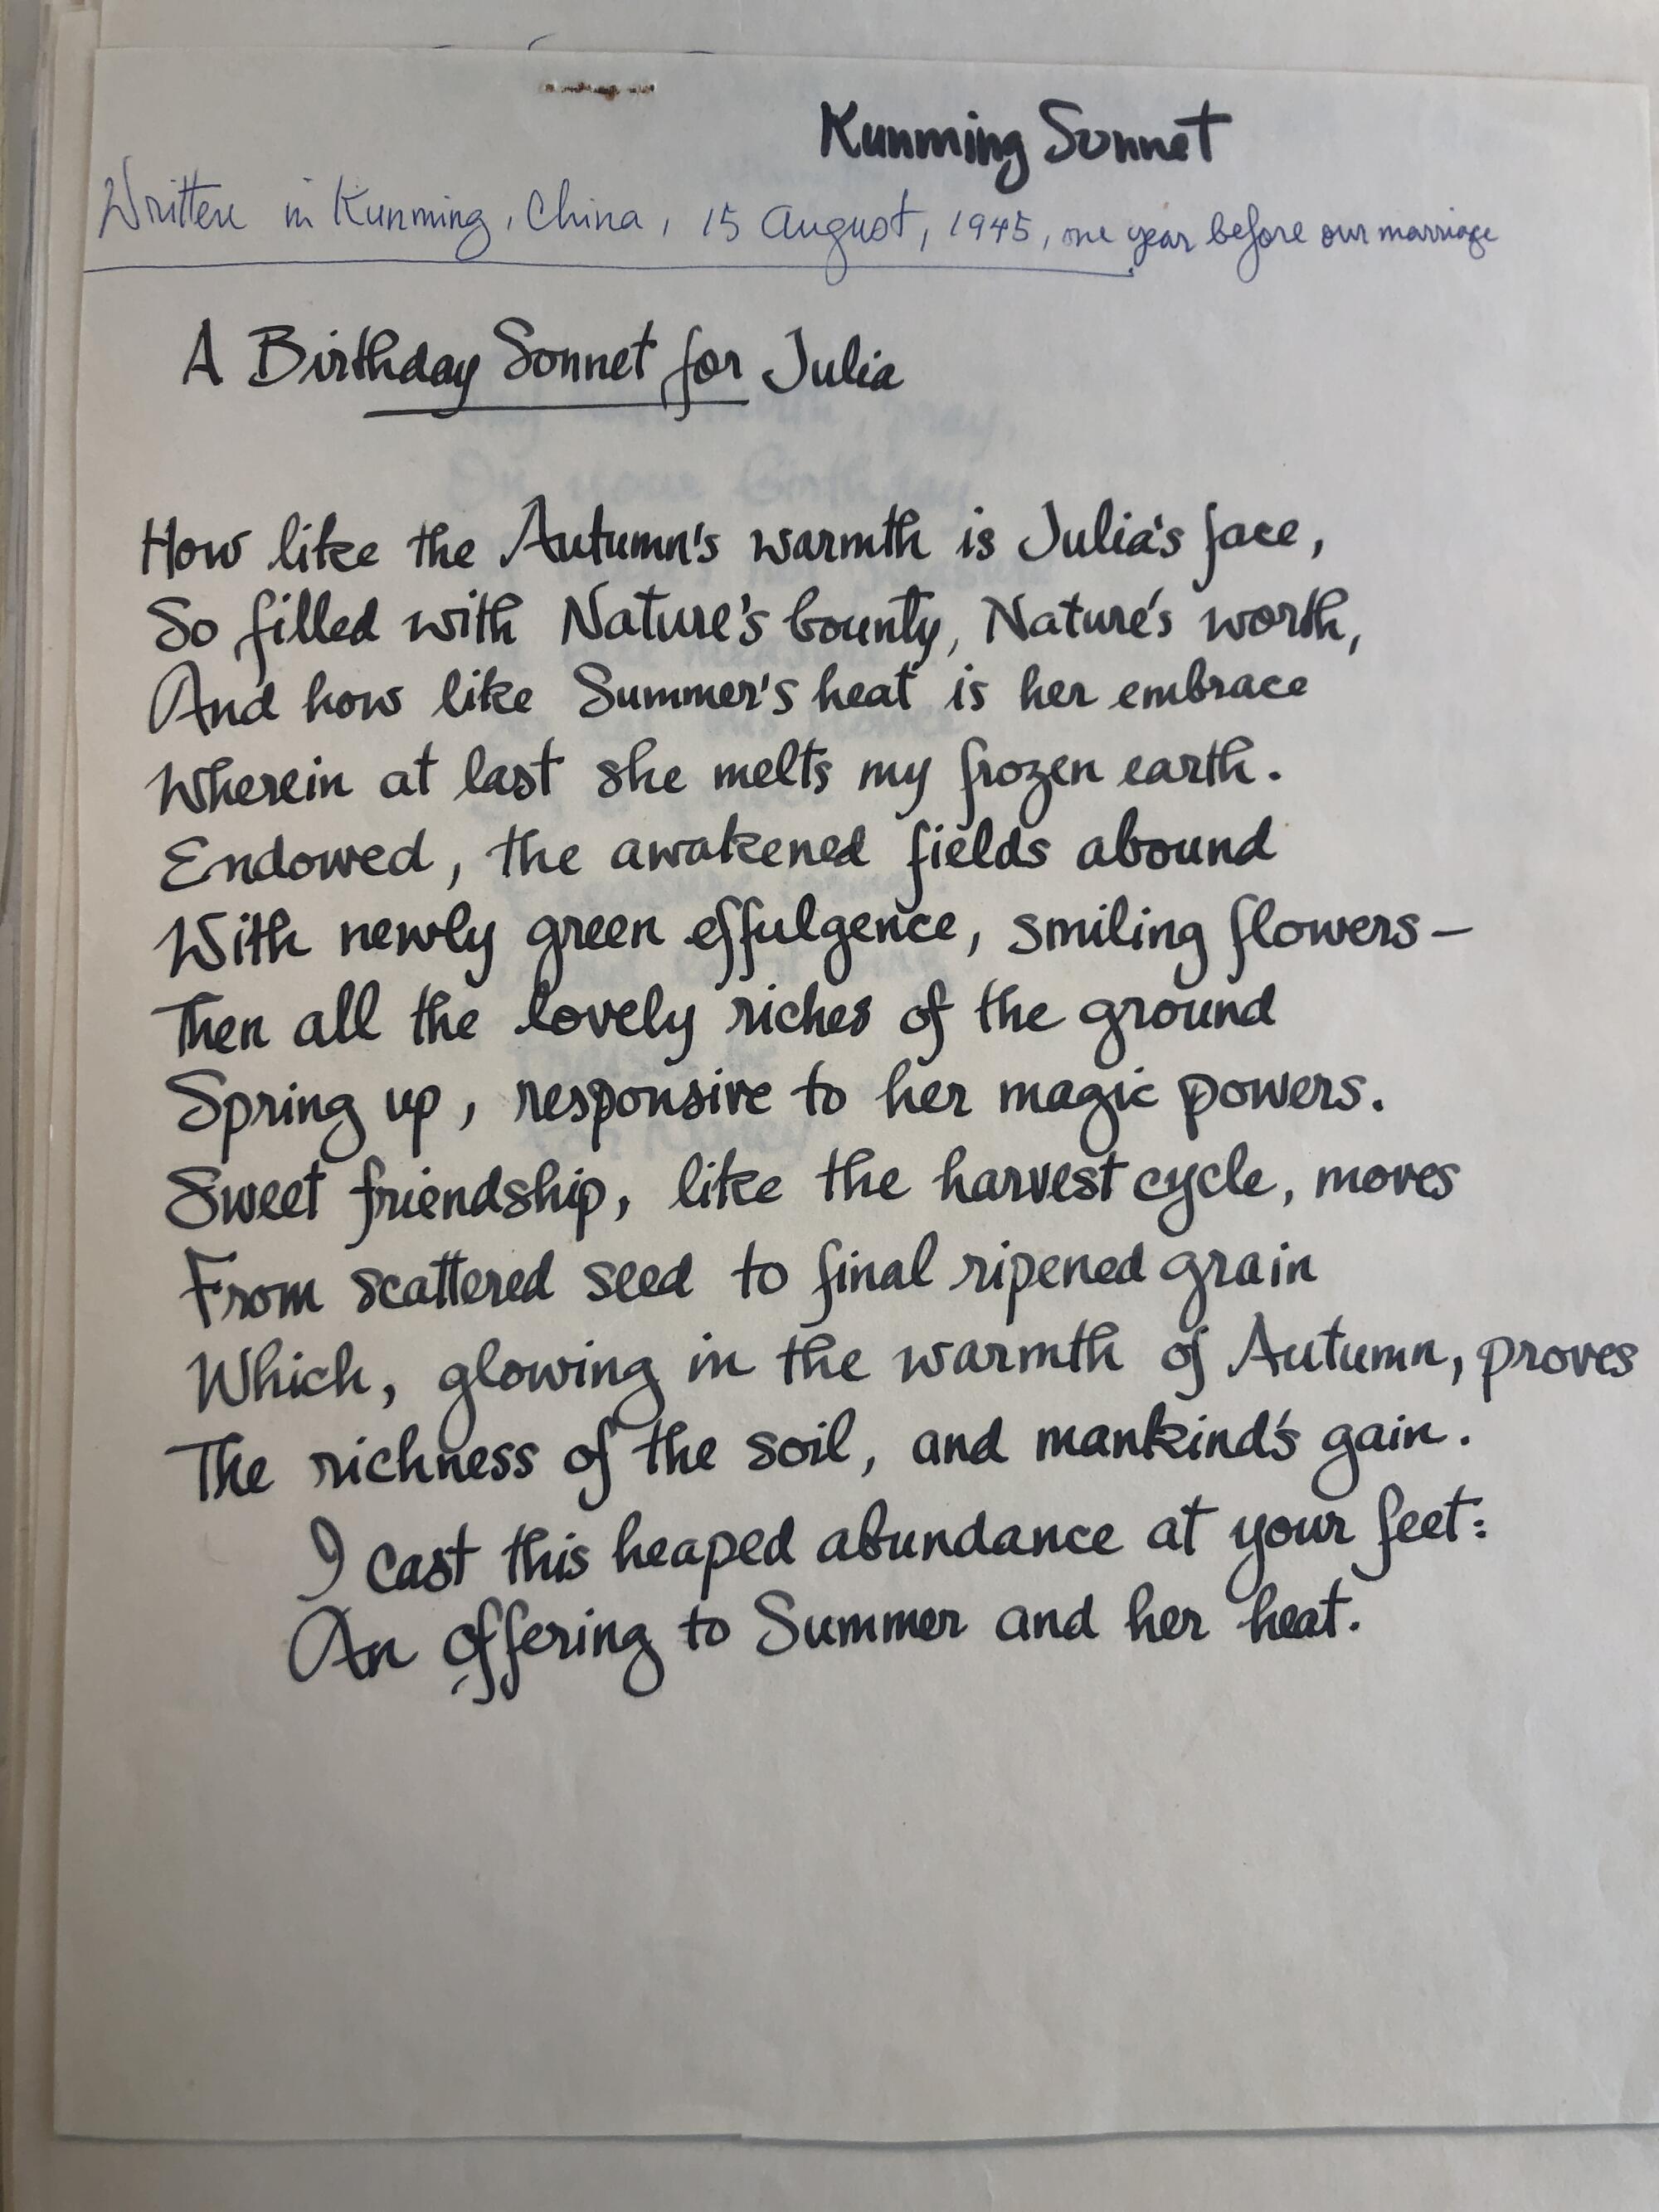 Kunming Sonnet
Written in Kunming, China, 15 August, 1945, one year before our marriage
A Birthday Sonnet for Julia
How like the Autumn's warmth is Julia's face,
So filled with Nature's bounty, Nature's worth,
And how like Summer's heat is her embrace
Wherein at last she melts my frozen earth.
Endowed, the awakened fields abound
With newly green effulgence, smiling flowers—
Then all the lovely riches of the ground
Spring up, responsive to her magic powers.
Sweet friendship, like the harvest cycle, moves
From scattered seed to final ripened grain
Which, glowing in the warmth of Autumn, proves
The richness of the soil, and mankind's gain.
I cast this heaped abundance at your feet:
An offering to Summer and her heat.